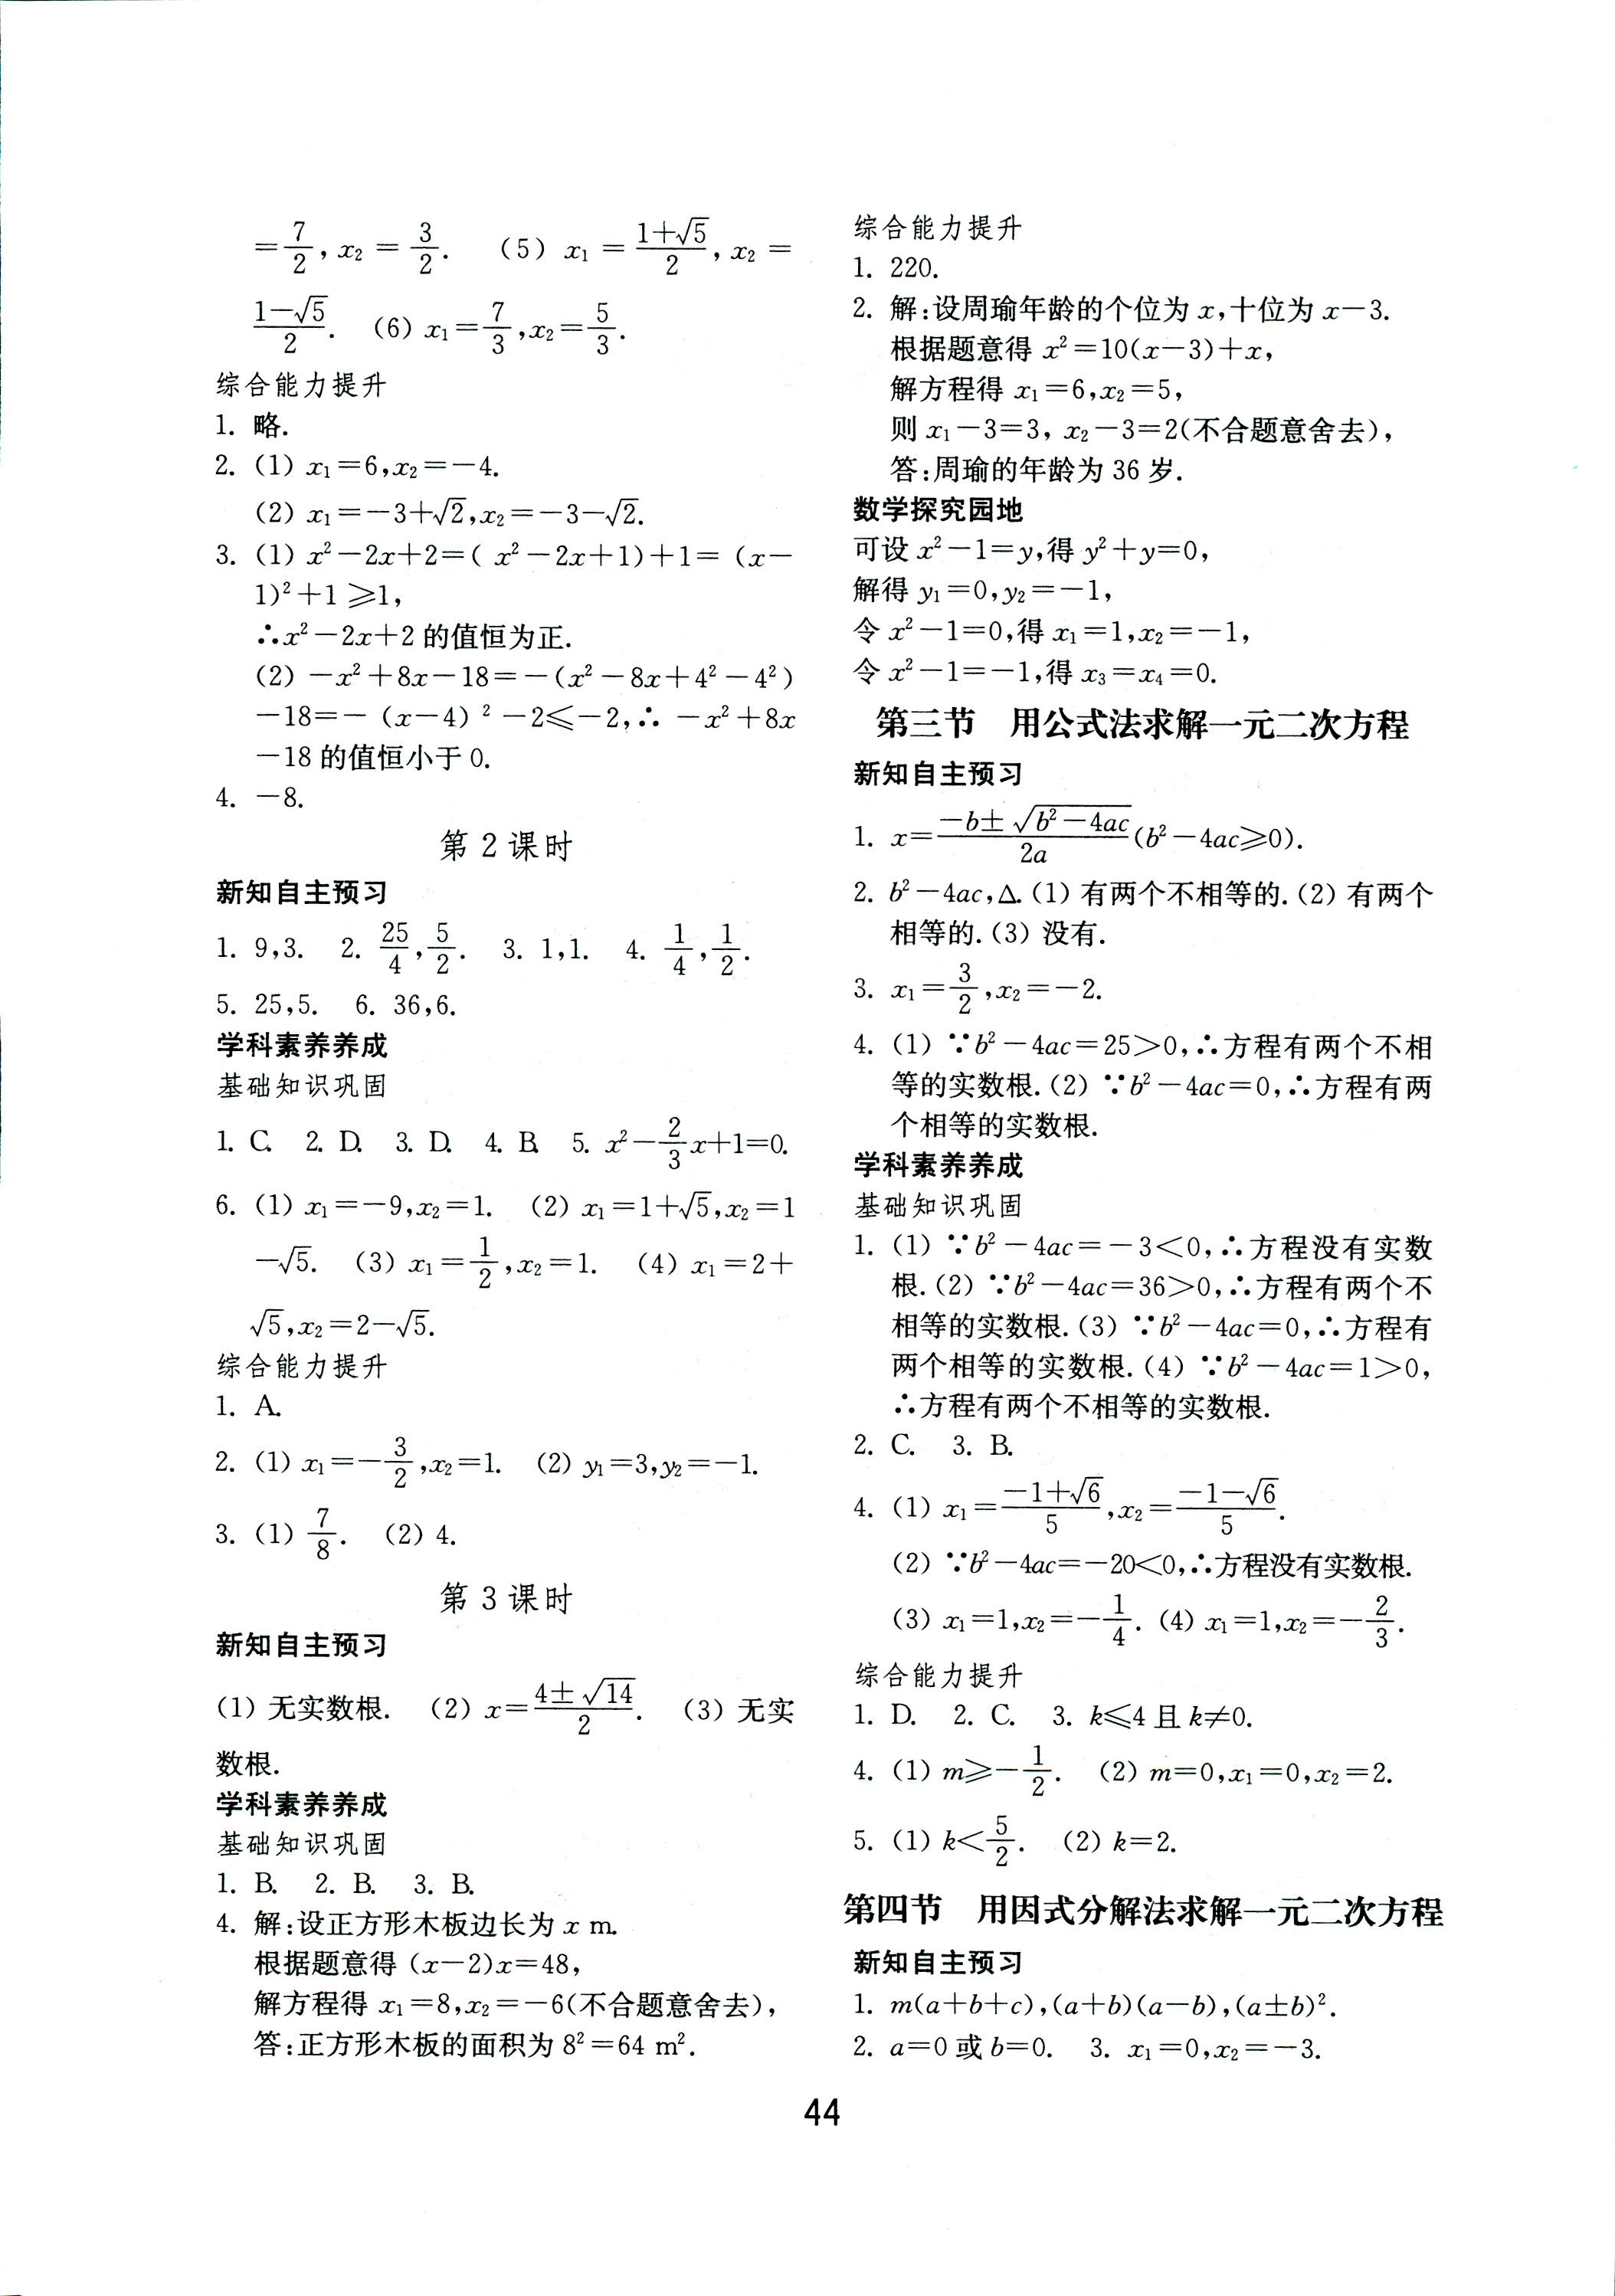 =7/2, x₂=3/2. (5) x₁=(1+√5)/2, x₂=
(1-√5)/2. (6) x₁=7/3,x₂=5/3.
综合能力提升
1. 略.
2. (1) x₁=6,x₂=-4.
(2) x₁=-3+√2,x₂=-3-√2.
3. (1) x²-2x+2=( x²-2x+1)+1= (x-
1)²+1 ≥1,
∴x²-2x+2 的值恒为正.
(2) -x²+8x-18=-(x²-8x+4²-4²)
-18=- (x-4) ²-2≤-2,∴ -x²+8x
-18 的值恒小于 0.
4. -8.
第 2 课时
新知自主预习
1. 9,3. 2. 25/4,5/2. 3. 1,1. 4. 1/4,1/2.
5. 25,5. 6. 36,6.
学科素养养成
基础知识巩固
1. C. 2. D. 3. D. 4. B. 5. x²-2/3x+1=0.
6. (1) x₁=-9,x₂=1. (2) x₁=1+√5,x₂=1
-√5. (3) x₁=1/2,x₂=1. (4) x₁=2+
√5,x₂=2-√5.
综合能力提升
1. A.
2. (1) x₁=-3/2,x₂=1. (2) y₁=3,y₂=-1.
3. (1) 7/8. (2) 4.
第 3 课时
新知自主预习
(1) 无实数根. (2) x=(4±√14)/2. (3) 无实
数根.
学科素养养成
基础知识巩固
1. B. 2. B. 3. B.
4. 解:设正方形木板边长为 x m.
根据题意得 (x-2)x=48,
解方程得 x₁=8,x₂=-6(不合题意舍去),
答:正方形木板的面积为 8²=64 m².
综合能力提升
1. 220.
2. 解:设周瑜年龄的个位为 x,十位为 x-3.
根据题意得 x²=10(x-3)+x,
解方程得 x₁=6,x₂=5,
则 x₁-3=3, x₂-3=2(不合题意舍去),
答:周瑜的年龄为 36 岁.
数学探究园地
可设 x²-1=y,得 y²+y=0,
解得 y₁=0,y₂=-1,
令 x²-1=0,得 x₁=1,x₂=-1,
令 x²-1=-1,得 x₃=x₄=0.
第三节 用公式法求解一元二次方程
新知自主预习
1. x=(-b±√(b²-4ac))/2a(b²-4ac≥0).
2. b²-4ac,Δ. (1) 有两个不相等的. (2) 有两个
相等的. (3) 没有.
3. x₁=3/2,x₂=-2.
4. (1) ∵b²-4ac=25>0,∴方程有两个不相
等的实数根. (2) ∵b²-4ac=0,∴方程有两
个相等的实数根.
学科素养养成
基础知识巩固
1. (1) ∵b²-4ac=-3<0,∴方程没有实数
根. (2) ∵b²-4ac=36>0,∴方程有两个不
相等的实数根. (3) ∵b²-4ac=0,∴方程有
两个相等的实数根. (4) ∵b²-4ac=1>0,
∴方程有两个不相等的实数根.
2. C. 3. B.
4. (1) x₁=(-1+√6)/5,x₂=(-1-√6)/5.
(2) ∵b²-4ac=-20<0,∴方程没有实数根.
(3) x₁=1,x₂=-1/4. (4) x₁=1,x₂=-2/3.
综合能力提升
1. D. 2. C. 3. k≤4 且 k≠0.
4. (1) m≥-1/2. (2) m=0,x₁=0,x₂=2.
5. (1) k<5/2. (2) k=2.
第四节 用因式分解法求解一元二次方程
新知自主预习
1. m(a+b+c),(a+b)(a-b),(a±b)².
2. a=0 或 b=0. 3. x₁=0,x₂=-3.
44